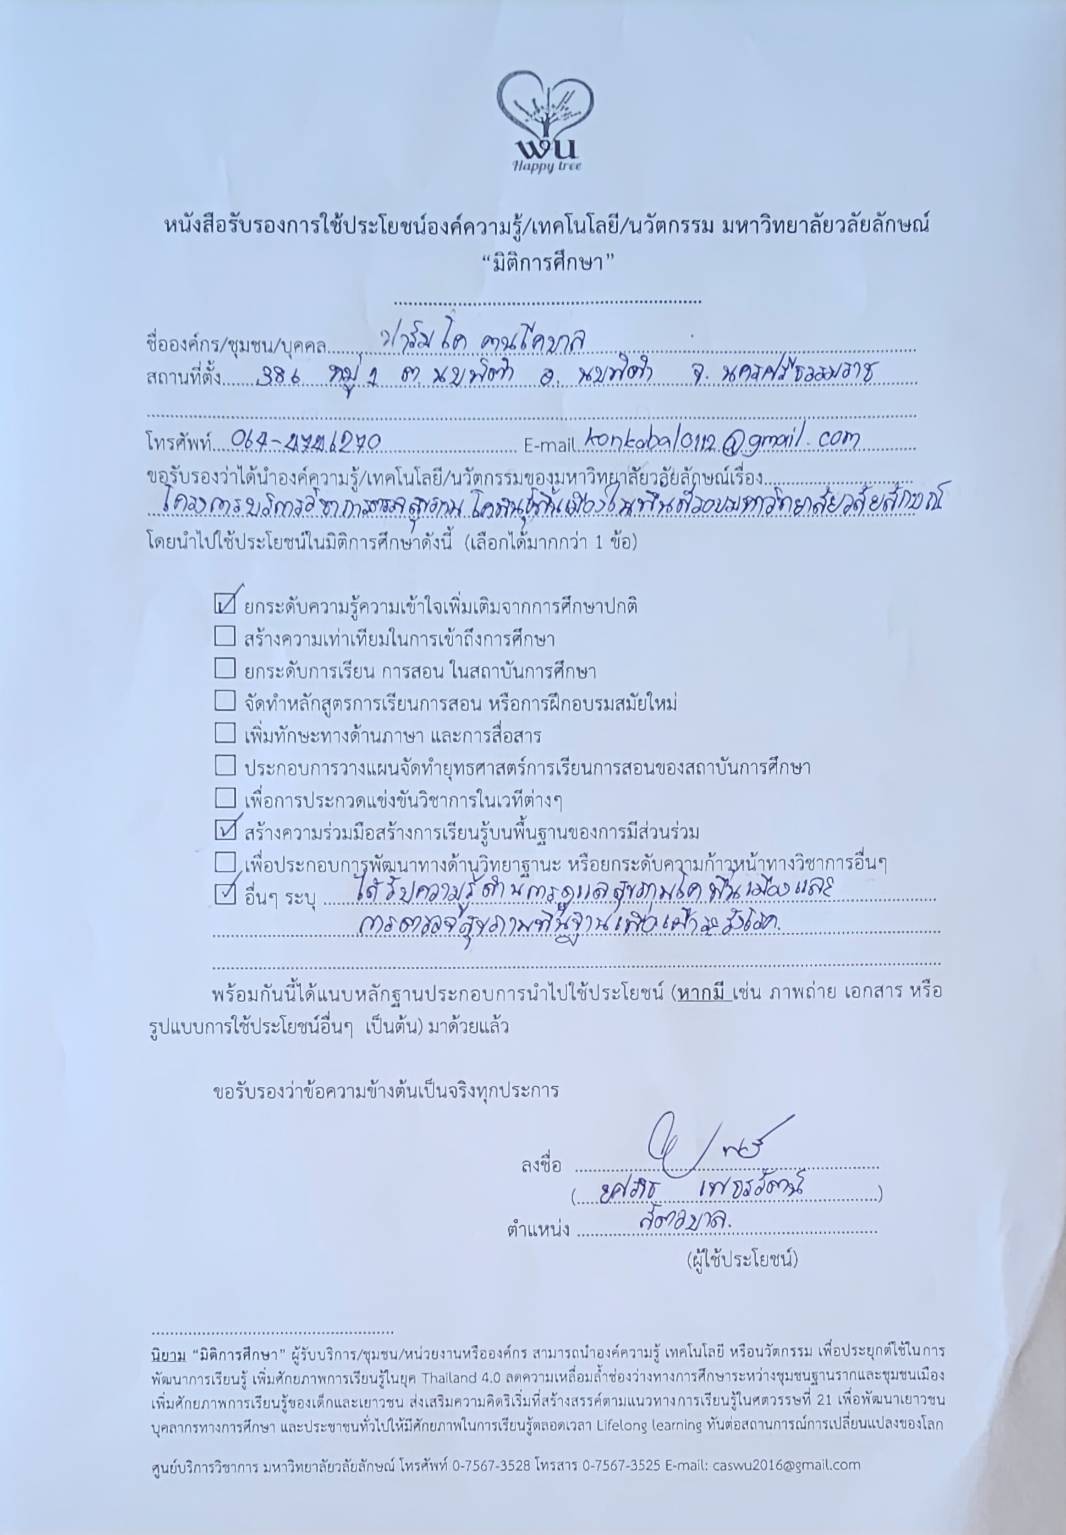 wu
Happy tree
หนังสือรับรองการใช้ประโยชน์องค์ความรู้/เทคโนโลยี/นวัตกรรม มหาวิทยาลัยวลัยลักษณ์
“มิติการศึกษา”
ชื่อองค์กร/ชุมชน/บุคคล ฟาร์มโค คานโคบาล
สถานที่ตั้ง 386 หมู่ 1 ต. นบพิตำ อ. นบพิตำ จ. นครศรีธรรมราช
โทรศัพท์ 064- E-mail konkobal0112@gmail.com
ขอรับรองว่าได้นำองค์ความรู้/เทคโนโลยี/นวัตกรรมของมหาวิทยาลัยวลัยลักษณ์เรื่อง
โครงการบริการวิชาการตรวจสุขภาพ โคพันธุ์พื้นเมืองในพื้นที่รอบมหาวิทยาลัยวลัยลักษณ์
โดยนำไปใช้ประโยชน์ในมิติการศึกษาดังนี้ (เลือกได้มากกว่า 1 ข้อ)
ยกระดับความรู้ความเข้าใจเพิ่มเติมจากการศึกษาปกติ
สร้างความเท่าเทียมในการเข้าถึงการศึกษา
ยกระดับการเรียน การสอน ในสถาบันการศึกษา
จัดทำหลักสูตรการเรียนการสอน หรือการฝึกอบรมสมัยใหม่
เพิ่มทักษะทางด้านภาษา และการสื่อสาร
ประกอบการวางแผนจัดทำยุทธศาสตร์การเรียนการสอนของสถาบันการศึกษา
เพื่อการประกวดแข่งขันวิชาการในเวทีต่างๆ
สร้างความร่วมมือสร้างการเรียนรู้บนพื้นฐานของการมีส่วนร่วม
เพื่อประกอบการพัฒนาทางด้านวิทยาฐานะ หรือยกระดับความก้าวหน้าทางวิชาการอื่นๆ
อื่นๆ ระบุ ได้รับความรู้ด้านการดูแลสุขภาพโคพื้นเมืองและ
การตรวจสุขภาพพื้นฐานเพื่อเฝ้าระวังโรค.
พร้อมกันนี้ได้แนบหลักฐานประกอบการนำไปใช้ประโยชน์ (หากมี เช่น ภาพถ่าย เอกสาร หรือ
รูปแบบการใช้ประโยชน์อื่นๆ เป็นต้น) มาด้วยแล้ว
ขอรับรองว่าข้อความข้างต้นเป็นจริงทุกประการ
ลงชื่อ
( ยศราช เพชรรัตน์ )
ตำแหน่ง สัตวบาล.
(ผู้ใช้ประโยชน์)
นิยาม “มิติการศึกษา” ผู้รับบริการ/ชุมชน/หน่วยงานหรือองค์กร สามารถนำองค์ความรู้ เทคโนโลยี หรือนวัตกรรม เพื่อประยุกต์ใช้ในการ
พัฒนาการเรียนรู้ เพิ่มศักยภาพการเรียนรู้ในยุค Thailand 4.0 ลดความเหลื่อมล้ำช่องว่างทางการศึกษาระหว่างชุมชนฐานรากและชุมชนเมือง
เพิ่มศักยภาพการเรียนรู้ของเด็กและเยาวชน ส่งเสริมความคิดริเริ่มที่สร้างสรรค์ตามแนวทางการเรียนรู้ในศตวรรษที่ 21 เพื่อพัฒนาเยาวชน
บุคลากรทางการศึกษา และประชาชนทั่วไปให้มีศักยภาพในการเรียนรู้ตลอดเวลา Lifelong learning ทันต่อสถานการณ์การเปลี่ยนแปลงของโลก
ศูนย์บริการวิชาการ มหาวิทยาลัยวลัยลักษณ์ โทรศัพท์ 0-7567-3528 โทรสาร 0-7567-3525 E-mail: caswu2016@gmail.com